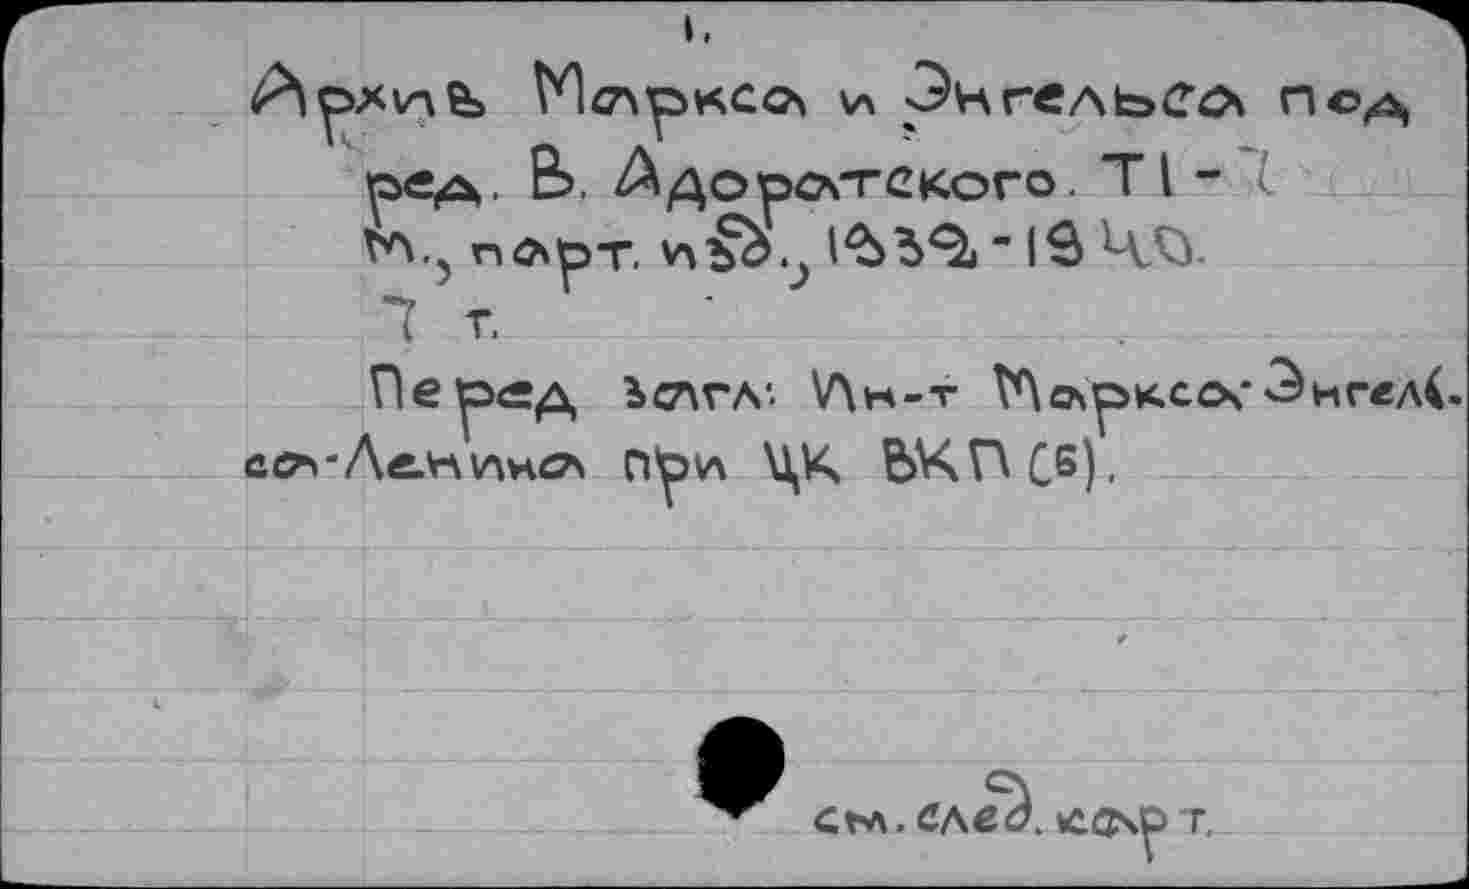 1.
Архивъ Маркса и Энгельса под
ред. В. Адоратского. Т1-7
М., парт. изд., 1932-1940.
7 т.
Перед загл: Ин-т Маркса-Энгель-
са-Ленина при ЦК ВКП(б).
см. след. карт.